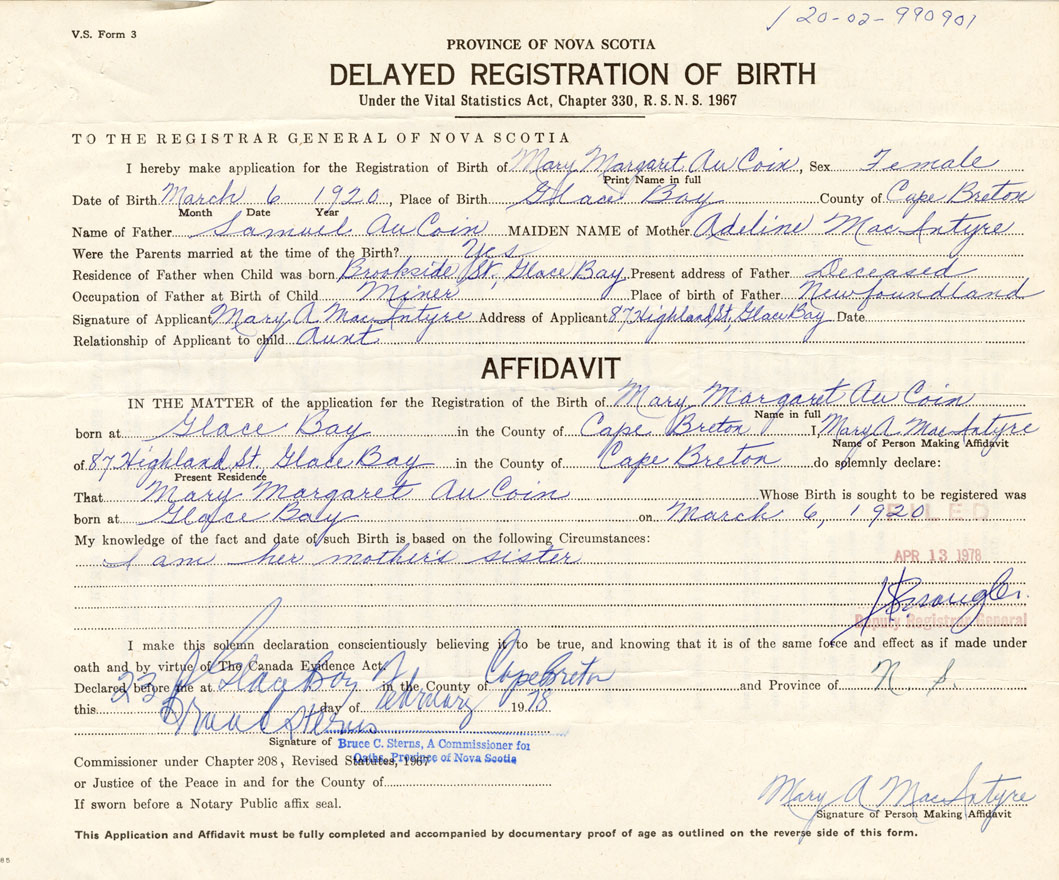 120-02-990901
V.S. Form 3
PROVINCE OF NOVA SCOTIA
DELAYED REGISTRATION OF BIRTH
Under the Vital Statistics Act, Chapter 330, R.S.N.S. 1967
TO THE REGISTRAR GENERAL OF NOVA SCOTIA
I hereby make application for the Registration of Birth of Mary Margaret AuCoin, Sex Female
Print Name in full
Date of Birth March 6 1920, Place of Birth Glace Bay County of Cape Breton
Month Date Year
Name of Father Samuel AuCoin MAIDEN NAME of Mother Adeline MacIntyre
Were the Parents married at the time of the Birth? Yes
Residence of Father when Child was born Brookside St, Glace Bay Present address of Father Deceased
Occupation of Father at Birth of Child Miner Place of birth of Father Newfoundland
Signature of Applicant Mary A MacIntyre Address of Applicant 87 Highland St, Glace Bay Date
Relationship of Applicant to child Aunt
AFFIDAVIT
IN THE MATTER of the application for the Registration of the Birth of Mary Margaret AuCoin
Name in full
born at Glace Bay in the County of Cape Breton I, Mary A MacIntyre
Name of Person Making Affidavit
of 87 Highland St, Glace Bay in the County of Cape Breton do solemnly declare:
Present Residence
That Mary Margaret AuCoin Whose Birth is sought to be registered was
born at Glace Bay on March 6, 1920
FILED
My knowledge of the fact and date of such Birth is based on the following Circumstances:
I am her mother's sister
APR 13 1978
Deputy Registrar General
I make this solemn declaration conscientiously believing it to be true, and knowing that it is of the same force and effect as if made under
oath and by virtue of The Canada Evidence Act.
Declared before me at Glace Bay in the County of Cape Breton and Province of N S.
this 23 day of February 1978
Bruce C Sterns
Signature of Bruce C. Sterns, A Commissioner for
Oaths, Province of Nova Scotia
Commissioner under Chapter 208, Revised Statutes, 1967
or Justice of the Peace in and for the County of
If sworn before a Notary Public affix seal.
Mary A MacIntyre
Signature of Person Making Affidavit
This Application and Affidavit must be fully completed and accompanied by documentary proof of age as outlined on the reverse side of this form.
85